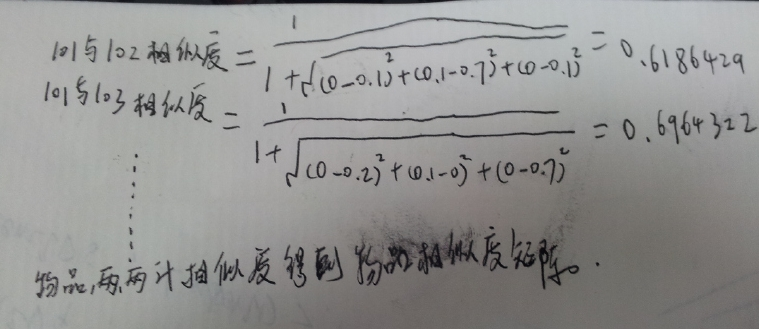 101与102相似度 = 1 / (1+√((0-0.1)²+(0.1-0.7)²+(0-0.1)²)) = 0.6186429
101与103相似度 = 1 / (1+√((0-0.2)²+(0.1-0)²+(0-0.7)²)) = 0.6964322
物品,两两计相似度得到物品相似度矩阵。